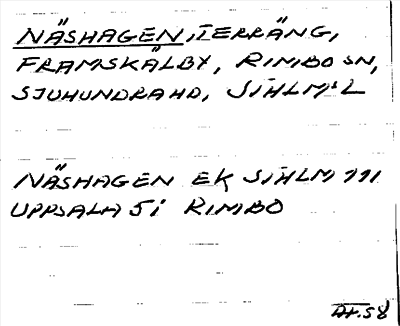 NÄSHAGEN, TERRÄNG,
FRAMSKÄLBY, RIMBO SN,
SJUHUNDRA HD, STHLMS L
NÄSHAGEN EK STHLM 111
UPPSALA 5i RIMBO
At. 58